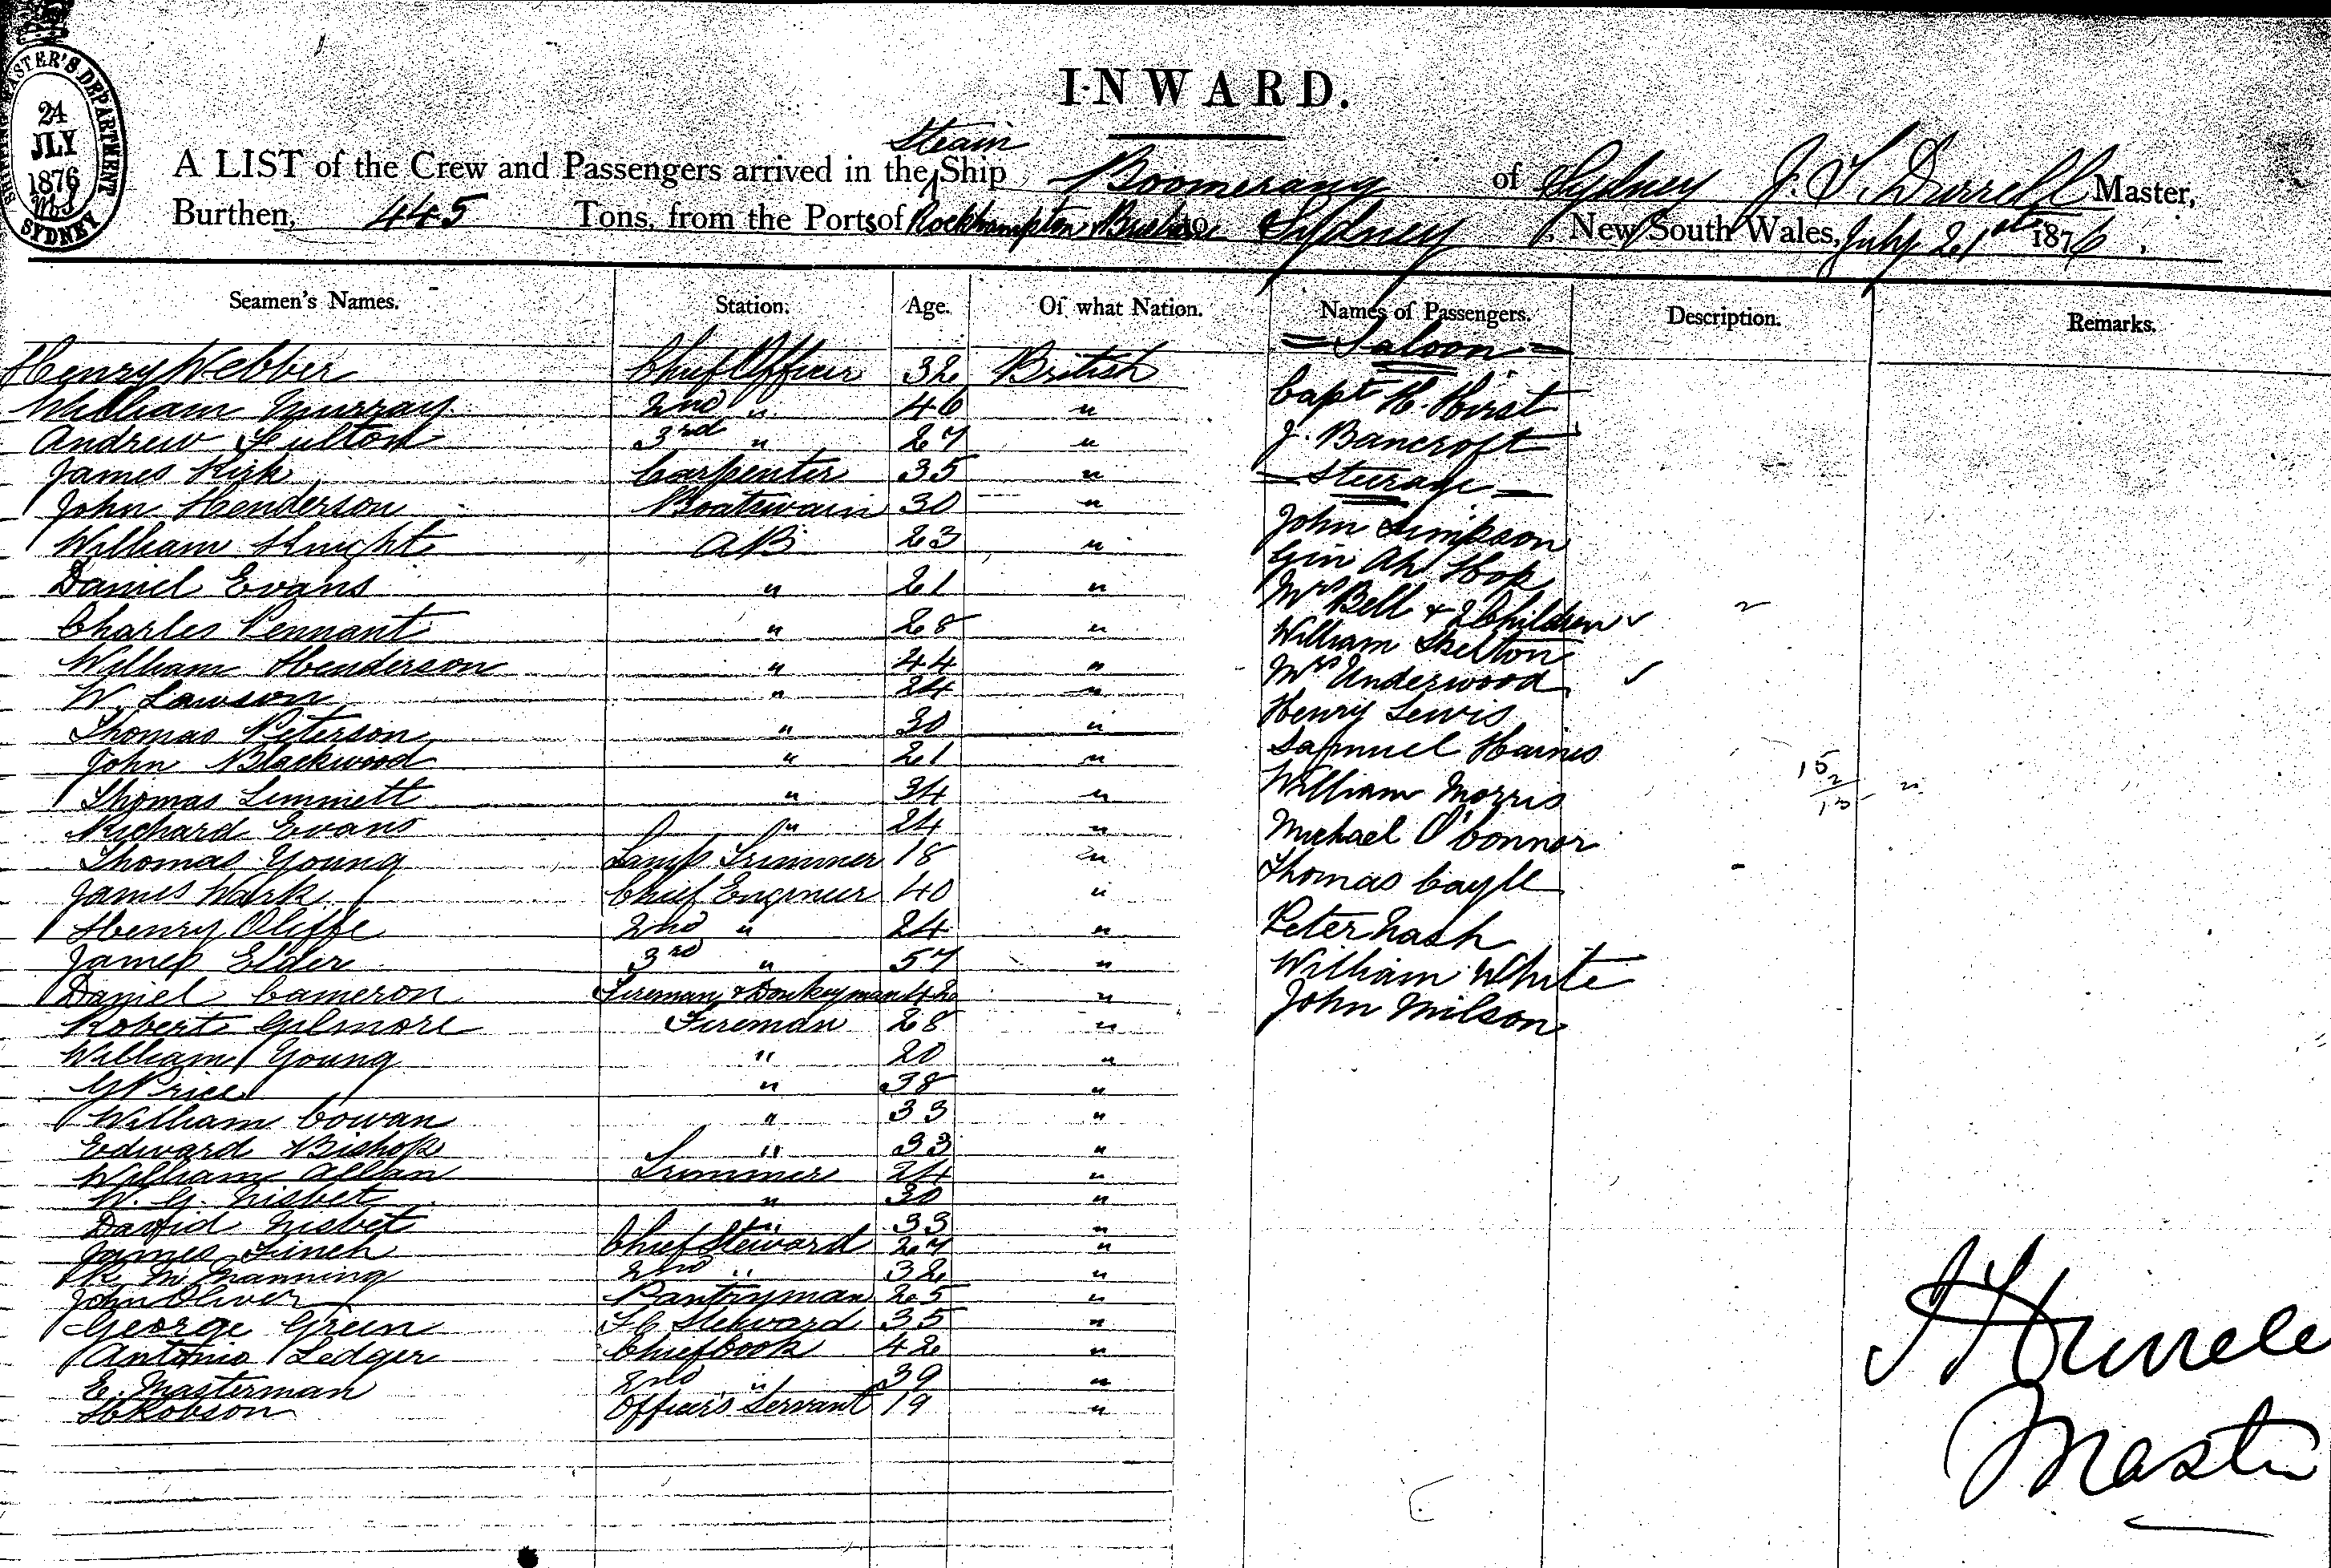 SHIPPING MASTER'S DEPARTMENT
24
JLY
1876
SYDNEY
INWARD.
Steam
A LIST of the Crew and Passengers arrived in the Ship Boomerang of Sydney J. T. Durrell Master,
Burthen, 445 Tons, from the Ports of Rockhampton & Brisbane to Sydney, New South Wales, July 21st 1876.
Seamen's Names. Station. Age. Of what Nation. Names of Passengers. Description. Remarks.
= Saloon =
Henry Webber Chief Officer 32 British
William Murray 2nd " 46 " Capt H. Hirst
Andrew Fulton 3rd " 27 " J. Bancroft
James Kirk Carpenter 35 " = Steerage =
John Henderson Boatswain 30 "
William Knight AB 23 " John Simpson
Gin Ah Hop
Daniel Evans " 21 " Mrs Bell & 2 Children
Charles Pennant " 28 " William Skelton
William Henderson " 44 " Mrs Underwood
W. Lawson " 24 "
Thomas Peterson " 30 " Henry Lewis
John Blackwood " 21 " Samuel Haines
Thomas Limmett " 34 " William Morris
Richard Evans " 24 " Michael O'Connor
Thomas Young Lamp Trimmer 18 "
James Wark Chief Engineer 40 " Thomas Cayll
Henry Oliffe 2nd " 24 " Peter Nash
James Elder 3rd " 57 " William White
Daniel Cameron Fireman & Donkeyman 42 " John Milson
Robert Gilmore Fireman 28 "
William Young " 20 "
G Price " 38 "
William Cowan " 33 "
Edward Bishop " 33 "
William Allan Trimmer 24 "
W. G. Nisbet " 30 "
David Nisbet " 33 "
James Finch Chief Steward 27 "
R. M. Manning 2nd " 32 "
John Oliver Pantryman 25 "
George Green F C Steward 35 "
Antonio Ledger Chief Cook 42 "
E. Masterman 2nd " 39 "
H Robson Officer's Servant 19 "
J T Durrell
Master